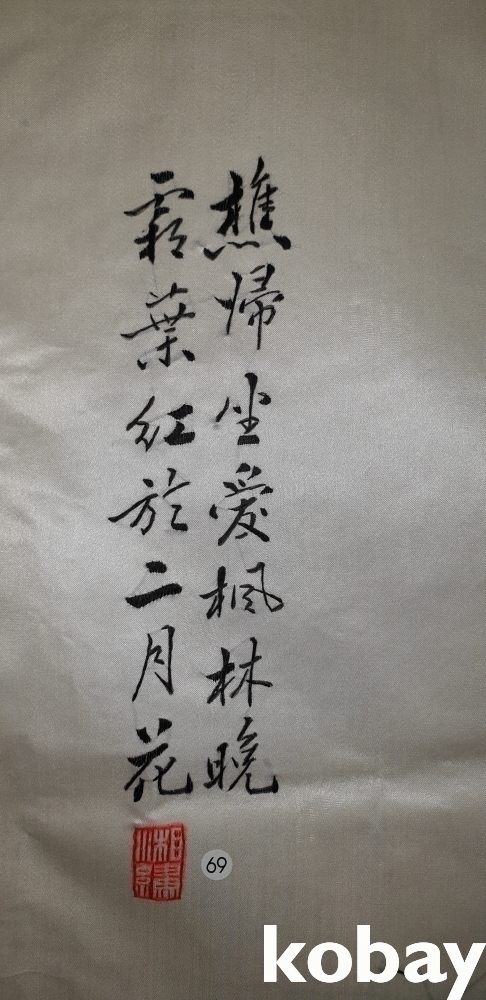 樵歸坐愛楓林晚
霜葉紅於二月花
69
kobay